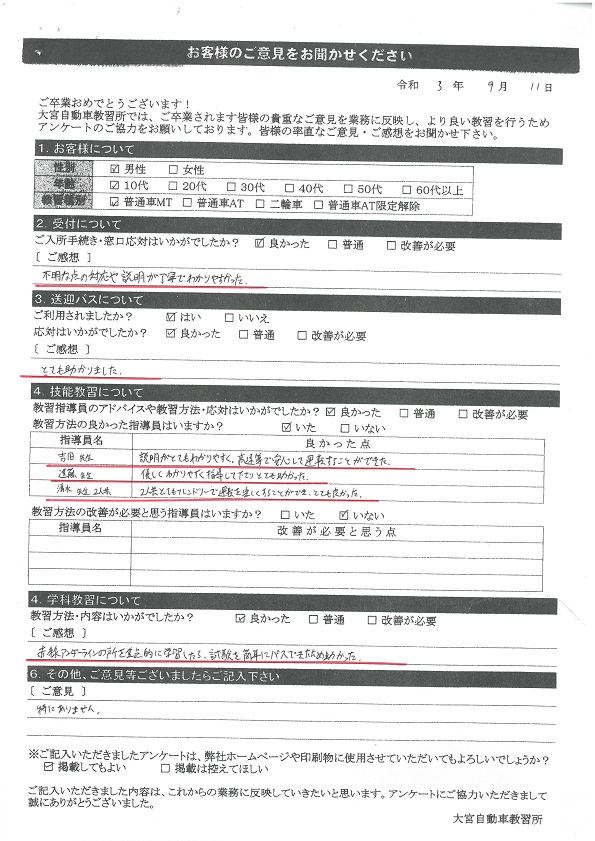 お客様のご意見をお聞かせください
令和 3 年 9 月 11 日
ご卒業おめでとうございます！
大宮自動車教習所では、ご卒業されます皆様の貴重なご意見を業務に反映し、より良い教習を行うため
アンケートのご協力をお願いしております。皆様の率直なご意見・ご感想をお聞かせ下さい。
1. お客様について
性別 ☑ 男性 □ 女性
年齢 ☑ 10代 □ 20代 □ 30代 □ 40代 □ 50代 □ 60代以上
教習種別 ☑ 普通車MT □ 普通車AT □ 二輪車 □ 普通車AT限定解除
2. 受付について
ご入所手続き・窓口応対はいかがでしたか？ ☑ 良かった □ 普通 □ 改善が必要
〔 ご感想 〕
不明な点の対応や説明が丁寧でわかりやすかった。
3. 送迎バスについて
ご利用されましたか？ ☑ はい □ いいえ
応対はいかがでしたか？ ☑ 良かった □ 普通 □ 改善が必要
〔 ご感想 〕
とても助かりました。
4. 技能教習について
教習指導員のアドバイスや教習方法・応対はいかがでしたか？ ☑ 良かった □ 普通 □ 改善が必要
教習方法の良かった指導員はいますか？ ☑ いた □ いない
指導員名 良かった点
吉田 先生 説明がとてもわかりやすく、高速等で安心して運転することができた。
遠藤 先生 優しくわかりやすく指導して下さりとても助かった。
清水 先生 2人共 2人共とてもフレンドリーで運転を楽しくすることができ、とても良かった。
教習方法の改善が必要と思う指導員はいますか？ □ いた ☑ いない
指導員名 改善が必要と思う点
4. 学科教習について
教習方法・内容はいかがでしたか？ ☑ 良かった □ 普通 □ 改善が必要
〔 ご感想 〕
赤線アンダーラインの所を重点的に学習したら、試験も簡単にパスできたため助かった。
6. その他、ご意見等ございましたらご記入下さい
〔 ご意見 〕
特にありません。
※ご記入いただきましたアンケートは、弊社ホームページや印刷物に使用させていただいてもよろしいでしょうか？
☑ 掲載してもよい □ 掲載は控えてほしい
ご記入いただきました内容は、これからの業務に反映していきたいと思います。アンケートにご協力いただきまして
誠にありがとうございました。
大宮自動車教習所